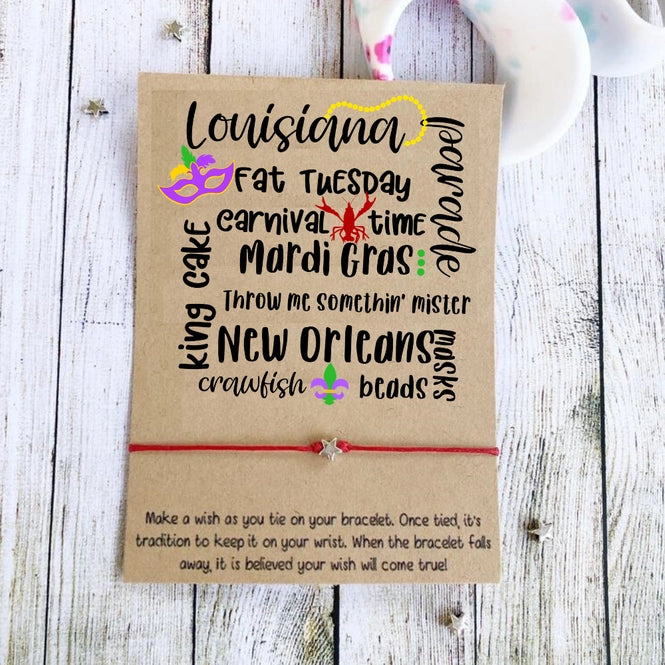 Louisiana
parade
Fat Tuesday
Carnival time
Mardi Gras
king cake
Throw me somethin' mister
New Orleans
masks
crawfish beads
Make a wish as you tie on your bracelet. Once tied, it's
tradition to keep it on your wrist. When the bracelet falls
away, it is believed your wish will come true!